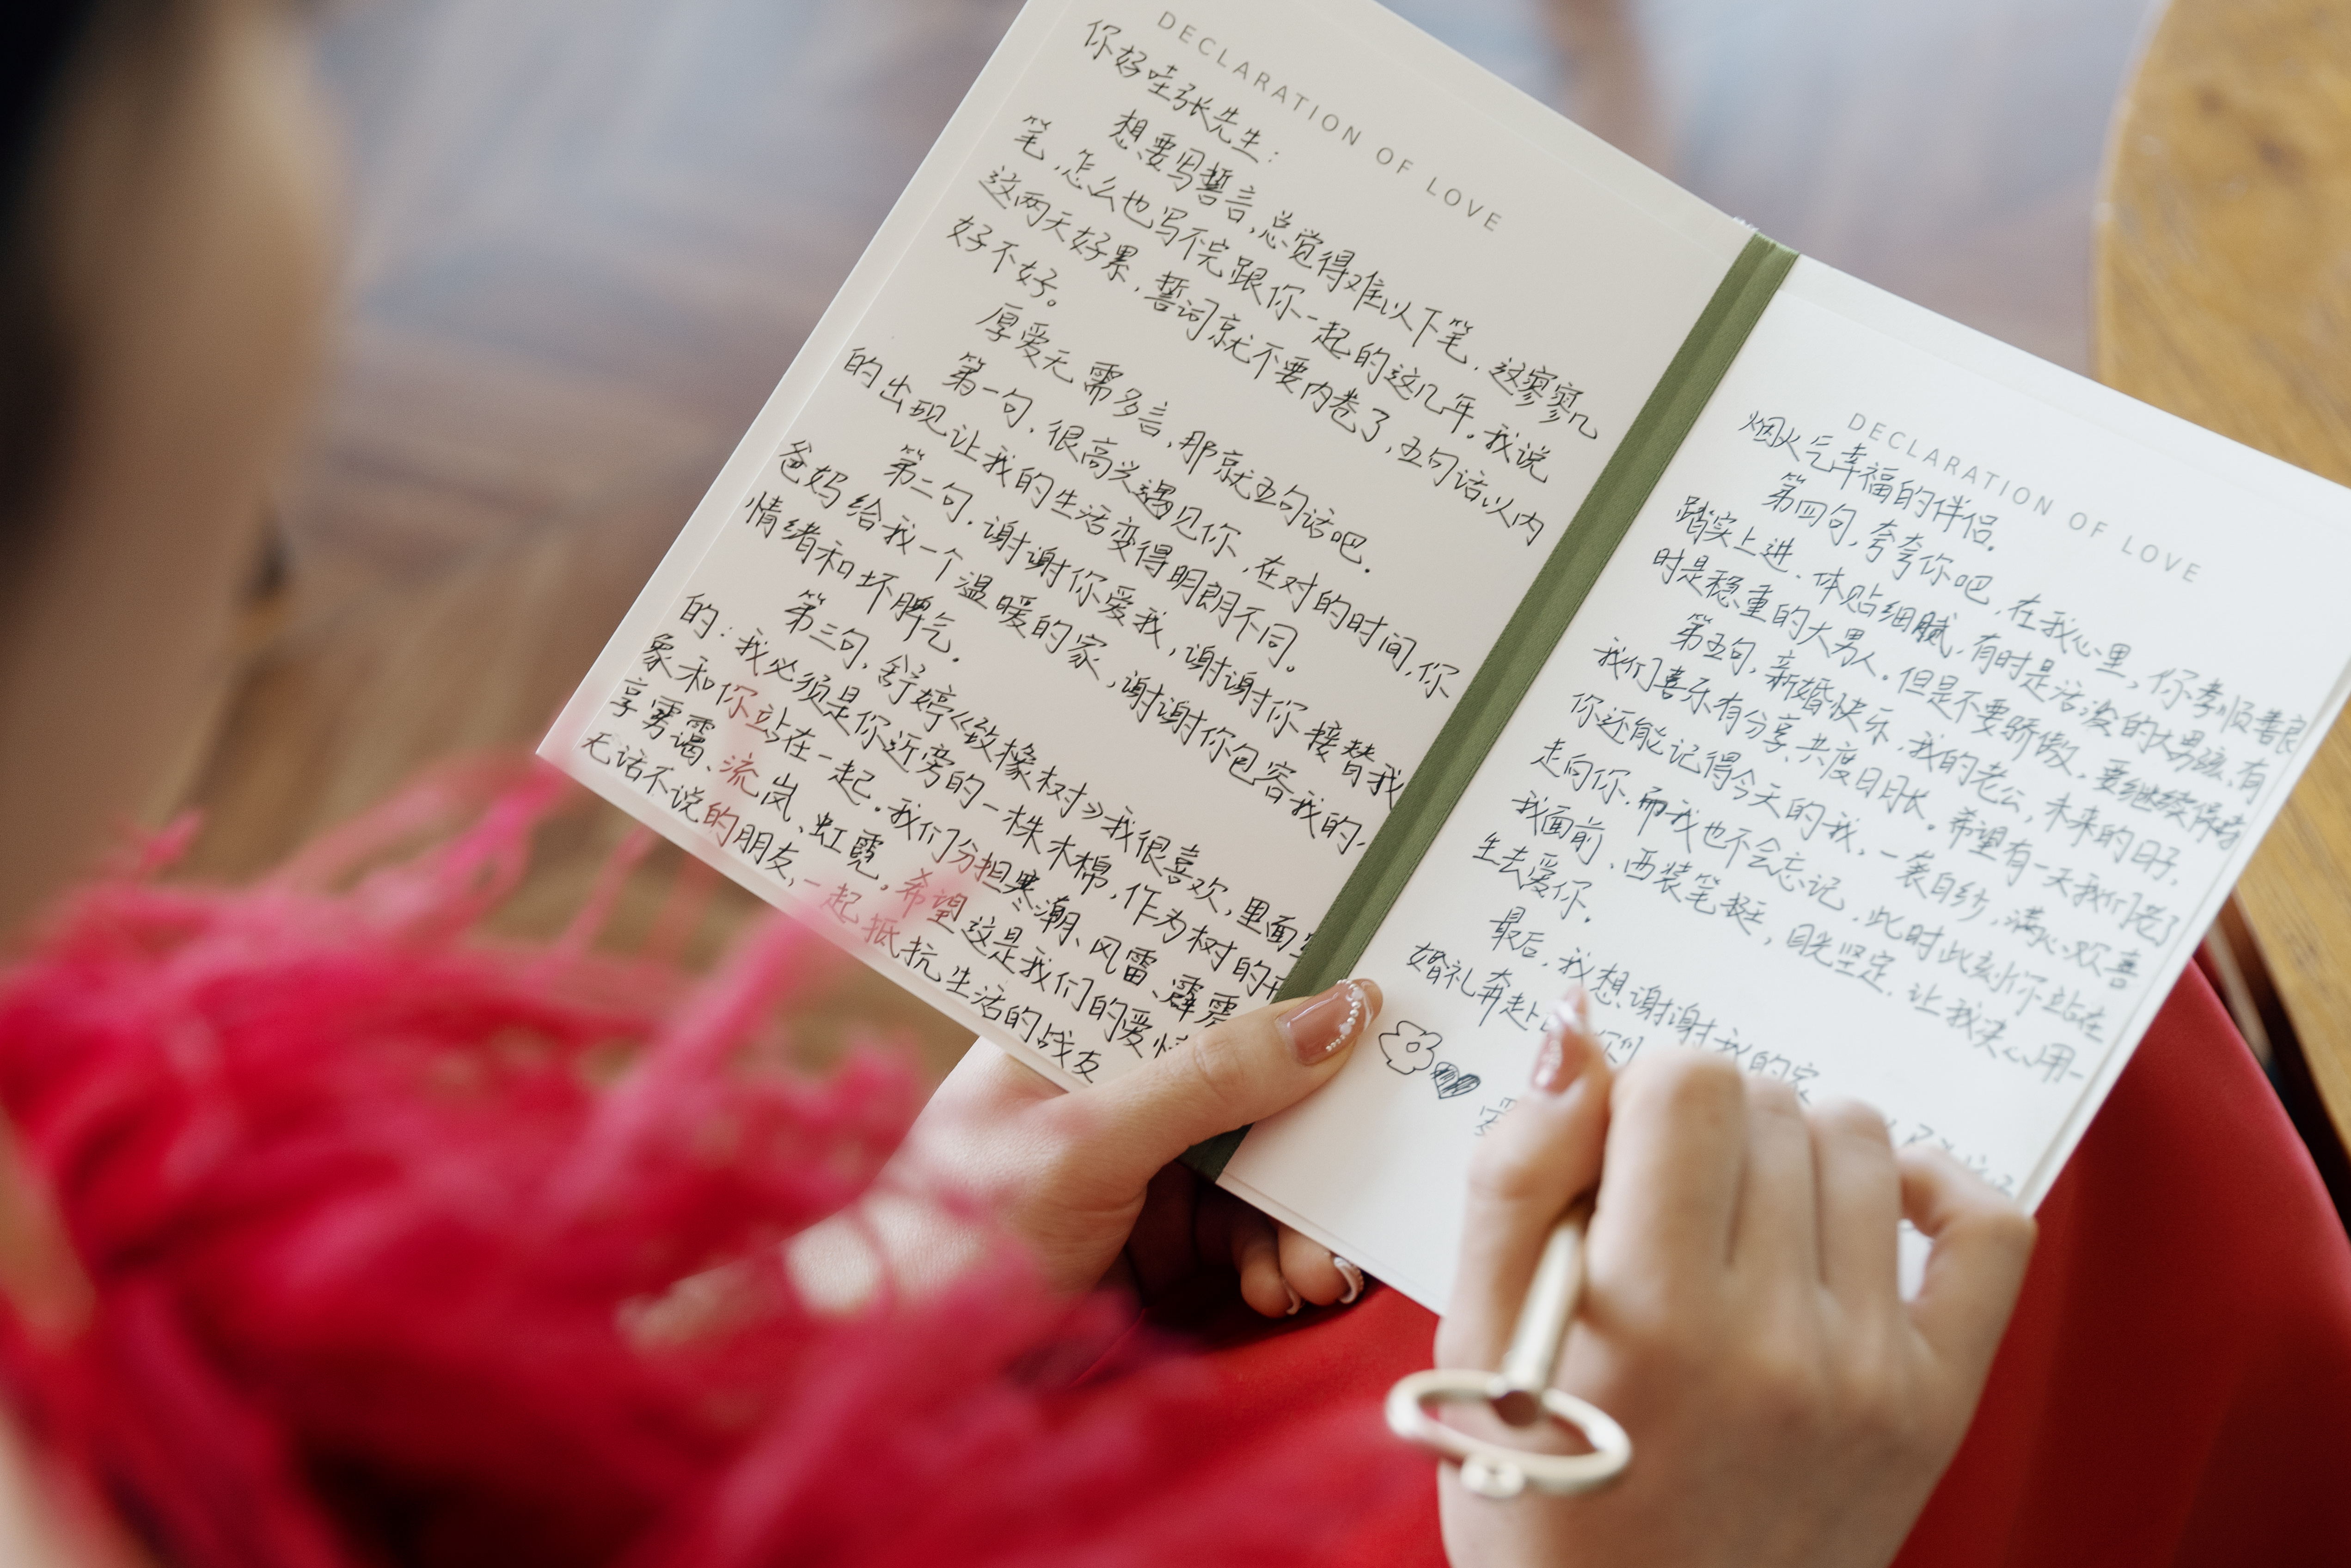 DECLARATION OF LOVE
你好哇张先生：
想要写誓言，总觉得难以下笔，这寥寥几
笔，怎么也写不完跟你一起的这几年。我说
这两天好累，誓词就不要内卷了，五句话以内
好不好。
厚爱无需多言，那就五句话吧。
第一句，很高兴遇见你，在对的时间，你
的出现让我的生活变得明朗不同。
第二句，谢谢你爱我，谢谢你接替我
爸妈给我一个温暖的家，谢谢你包容我的
情绪和坏脾气。
第三句，舒婷《致橡树》我很喜欢，里面
的：我必须是你近旁的一株木棉，作为树的
象和你站在一起。我们分担寒潮、风雷、霹雳
享雾霭、流岚、虹霓。希望这是我们的爱情
无话不说的朋友，一起抵抗生活的战友
DECLARATION OF LOVE
烟火气幸福的伴侣。
第四句，夸夸你吧，在我心里，你孝顺善良
踏实上进，体贴细腻，有时是活泼的大男孩，有
时是稳重的大男人。但是不要骄傲，要继续保持
第五句，新婚快乐，我的老公，未来的日子，
我们喜乐有分享，共度日月长。希望有一天我们老了
你还能记得今天的我，一袭白纱，满心欢喜
走向你，而我也不会忘记，此时此刻你站在
我面前，西装笔挺，目光坚定，让我决心用一
生去爱你。
最后，我想谢谢我的家
婚礼奔赴